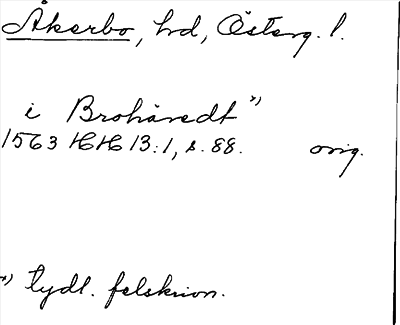 Åkerbo, hd, Österg. l.
i Brohäredt *)
1563 HH 13:1, s. 88. orig.
*) tydl. felskrivn.